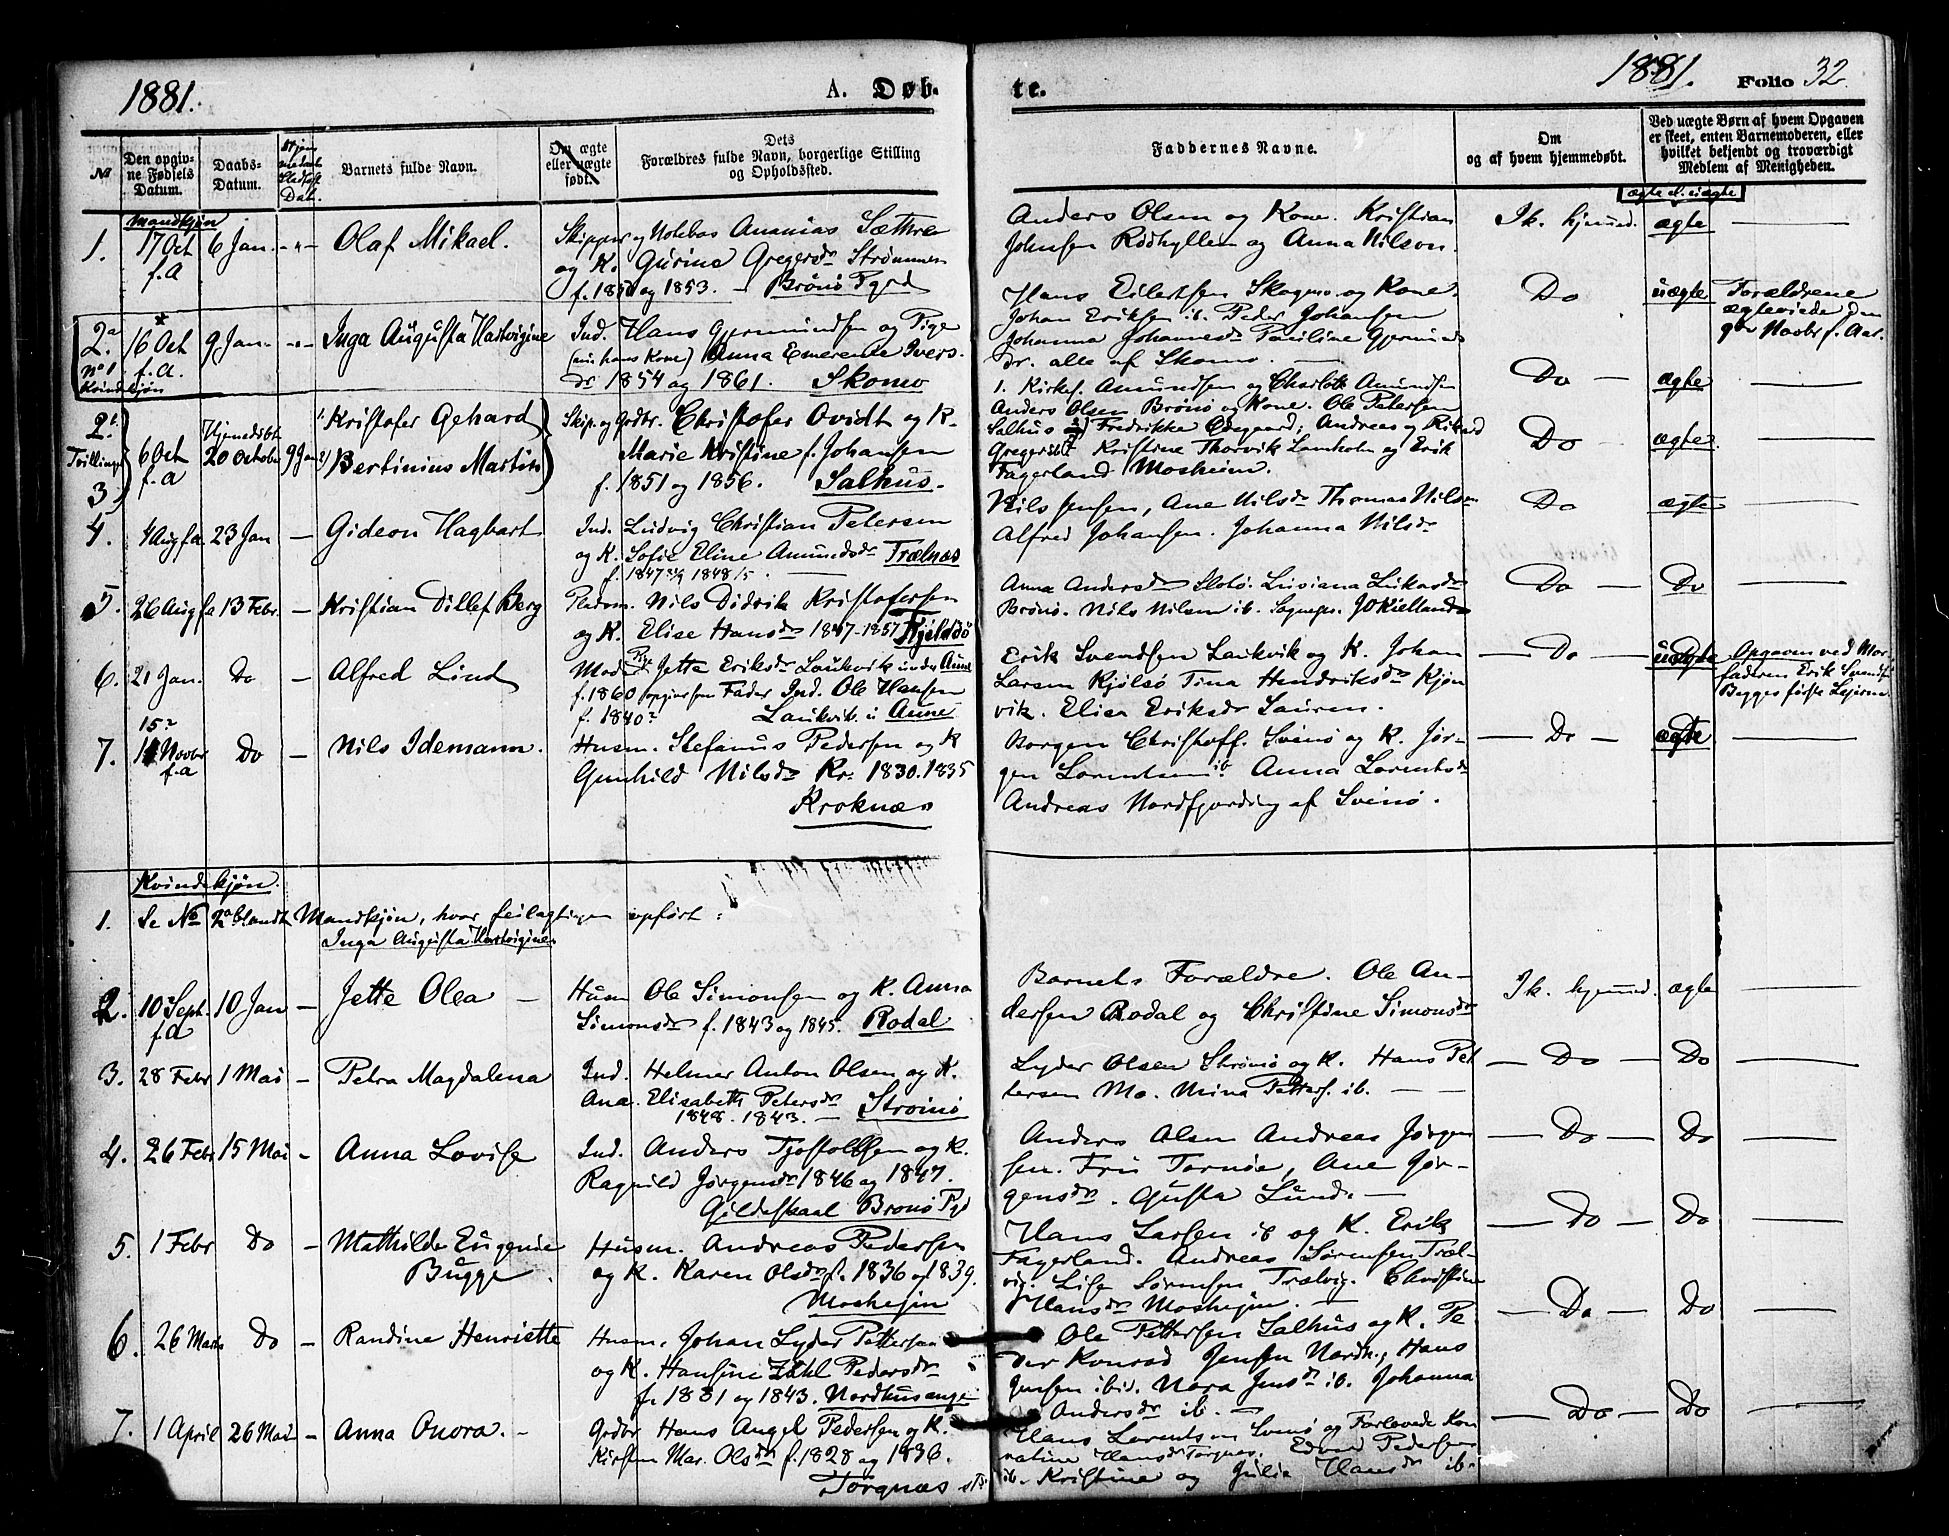 1881.
A. Døb-
te.
1881.
Folio 32.
№
Den opgiv-
ne Fødsels
Datum.
Daabs-
Datum.
Barnets fulde Navn.
Om ægte
eller uægte
født.
Dets
Forældres fulde Navn, borgerlige Stilling
og Opholdssted.
Faddernes Navne.
Om
og af hvem hjemmedøbt.
Ved uægte Børn af hvem Opgaven
er skeet, enten Barnemoderen, eller
hvilket bekjendt og troværdigt
Medlem af Menigheden.
ægte el. uægte
Mandkjøn
1.
17 Oct
f.a
6 Jan.
Olaf Mikael.
Skipper og Notebas Ananias Sæthre
og K. Gurine Gregersdr Strømmen
f. 1850 og 1853. - Brönö Pgrd
Anders Olsen og Kone. Kristian
Johnsen Rödhyllen og Anna Nilson.
Ik. hjemmed.
ægte
2a
№ 1
Kvindekjøn
16 Oct
f.a.
9 Jan.
Inga Augusta Hartvigine
Ind. Hans Gjermundsen og Pige
(nu hans Kone) Anna Emerende Ivers.
dr 1854 og 1861. Skomo
Hans Eilertsen Skogmo og Kone.
Johan Eriksen ib. Peder Johansen
Johanna Johannesdr Pauline Gjermunds
dr. alle af Skomo.
Do
uægte
Forældrene
ægteviede den
9de Novbr f. Aar.
2b.
Tvillinger
3
6 Oct
f.a
Hjemedöbt
20 October
9 Jan
1) Kristofer Gehard
2) Bertinius Martin
Skip. og Grdbr. Christofer Ovidt og K.
Marie Kristine f. Johansen
f. 1851 og 1856. Salhus.
1. Kirkes. Amundsen og Charlotte Amundsen
Anders Olsen Brönö og Kone. Ole Petersen
Salhus 2) Fredrikke Odegaard, Andreas og Rikard
Gregers Kristine Thorvik Lamholm og Erik
Fagerland Mosheim.
Do
ægte
Do
ægte
4.
4 Aug fa
23 Jan
Gideon Hagbart
Ind. Ludvig Christian Petersen
og K. Sofie Eline Amundsdr Trælnæs
f. 1847 1848
Nils Jensen, Ane Nilsdr Thomas Nilsen
Alfred Johansen. Johanna Nilsdr
Do
ægte
5.
26 Aug fa
13 Febr.
Kristian Dillef Berg
Pladsm. Nils Didrik Kristofersen
og K. Elise Hansdr 1847-1857 Kjeldsö
Anna Andersdr Slotö. Lusiana Lukasdr
Brönö. Nils Nilsen ib. Sognepr. JO Kielland
Do
Do
6.
21 Jan.
Do
Alfred Lind
Mod. Pige Jette Eriksdr Laukvik under Aune
f. 1860 opgiversen Fader Ind. Ole Hansen
f. 1840? Laukvik u Aune
Erik Svendsen Laukvik og K. Johan
Larsen Kjölsö Tina Hendriksdr Kjön
vik. Elise Eriksdr Sauren.
Do
uægte
Opgaven ved Mor-
faderen Erik Svendsen
Begges förste Leierm.
7.
15?
11 Novbr
f.a
Do
Nils Idemann.
Husm. Stefanus Pedersen og K
Gunhild Nilsdr Kr. 1830. 1835
Kroknæs
Borgen Christoff. Svinö og K. Jör-
gen Lorentsen ib. Anna Lorentsdr
Andreas Nordfjording af Svinö.
Do
ægte
Kvindekjön.
1.
Se № 2a blandt Mandkjön, hvor feilagtigen opfört:
Inga Augusta Hartvigine
2.
10 Sept.
f.a
10 Jan
Jette Olea
Husm Ole Simonsen og K. Anna
Simonsdr f. 1843 og 1845. Rodal
Barnets Forældre. Ole An-
dersen Rodal og Christine Simonsdr
Ik. hjemmed.
ægte
3.
28 Febr
1 Mai
Petra Magdalena
Ind. Helmer Anton Olsen og K.
Ana. Elisabeth Petersdr
1848. 1843. - Stroinö
Lyder Olsen Stroinö og K. Hans Pet
tersen Mo. Mina Petters. ib.
Do
Do
4.
26 Febr
15 Mai
Anna Lovise
Ind. Anders Tjostolfsen og K.
Ragnild Jörgensdr 1846 og 1847.
Gildeskaal Brönö Pgd
Anders Olsen Andreas Jörgen
sen. Fru Tornöe, Ane Jör-
gensdr. Gusta Lund.
Do
Do
5.
1 Febr
Do
Mathilde Eugenie
Bugge
Husm. Andreas Pedersen
og K. Karen Olsdr f. 1836 og 1839.
Moshejm
Hans Larsen ib og K. Erik
Fagerland. Andreas Sörensen Træl-
vig. Lise Sörensen Trælvig. Christine
Hansdr Moshejm.
Do
Do
6.
26 Marts
Do
Randine Henriette
Husm. Johan Lyder Pettersen
og K. Hansine Pedersdr
f. 1831 og 1843. Nordhuseng
Ole Pettersen Salhus og K. Pe
der Konrad Jensen Nordh., Hans
Jensen ibid. Nora Jensdr ib. Johanna
Andersdr ib.
Do
Do
7.
1 April
26 Mai
Anna Onora.
Grdbr Hans Angel Pedersen og K.
Kirsten Mar. Olsdr f. 1828 og 1836.
Torgnæs
Hans Lorentsen Svinö og Forlovede Kor
natine Hansdr Torgnes. Edvard Pedersen
ib. Kristine og Julia Hansdr ib.
Do
Do